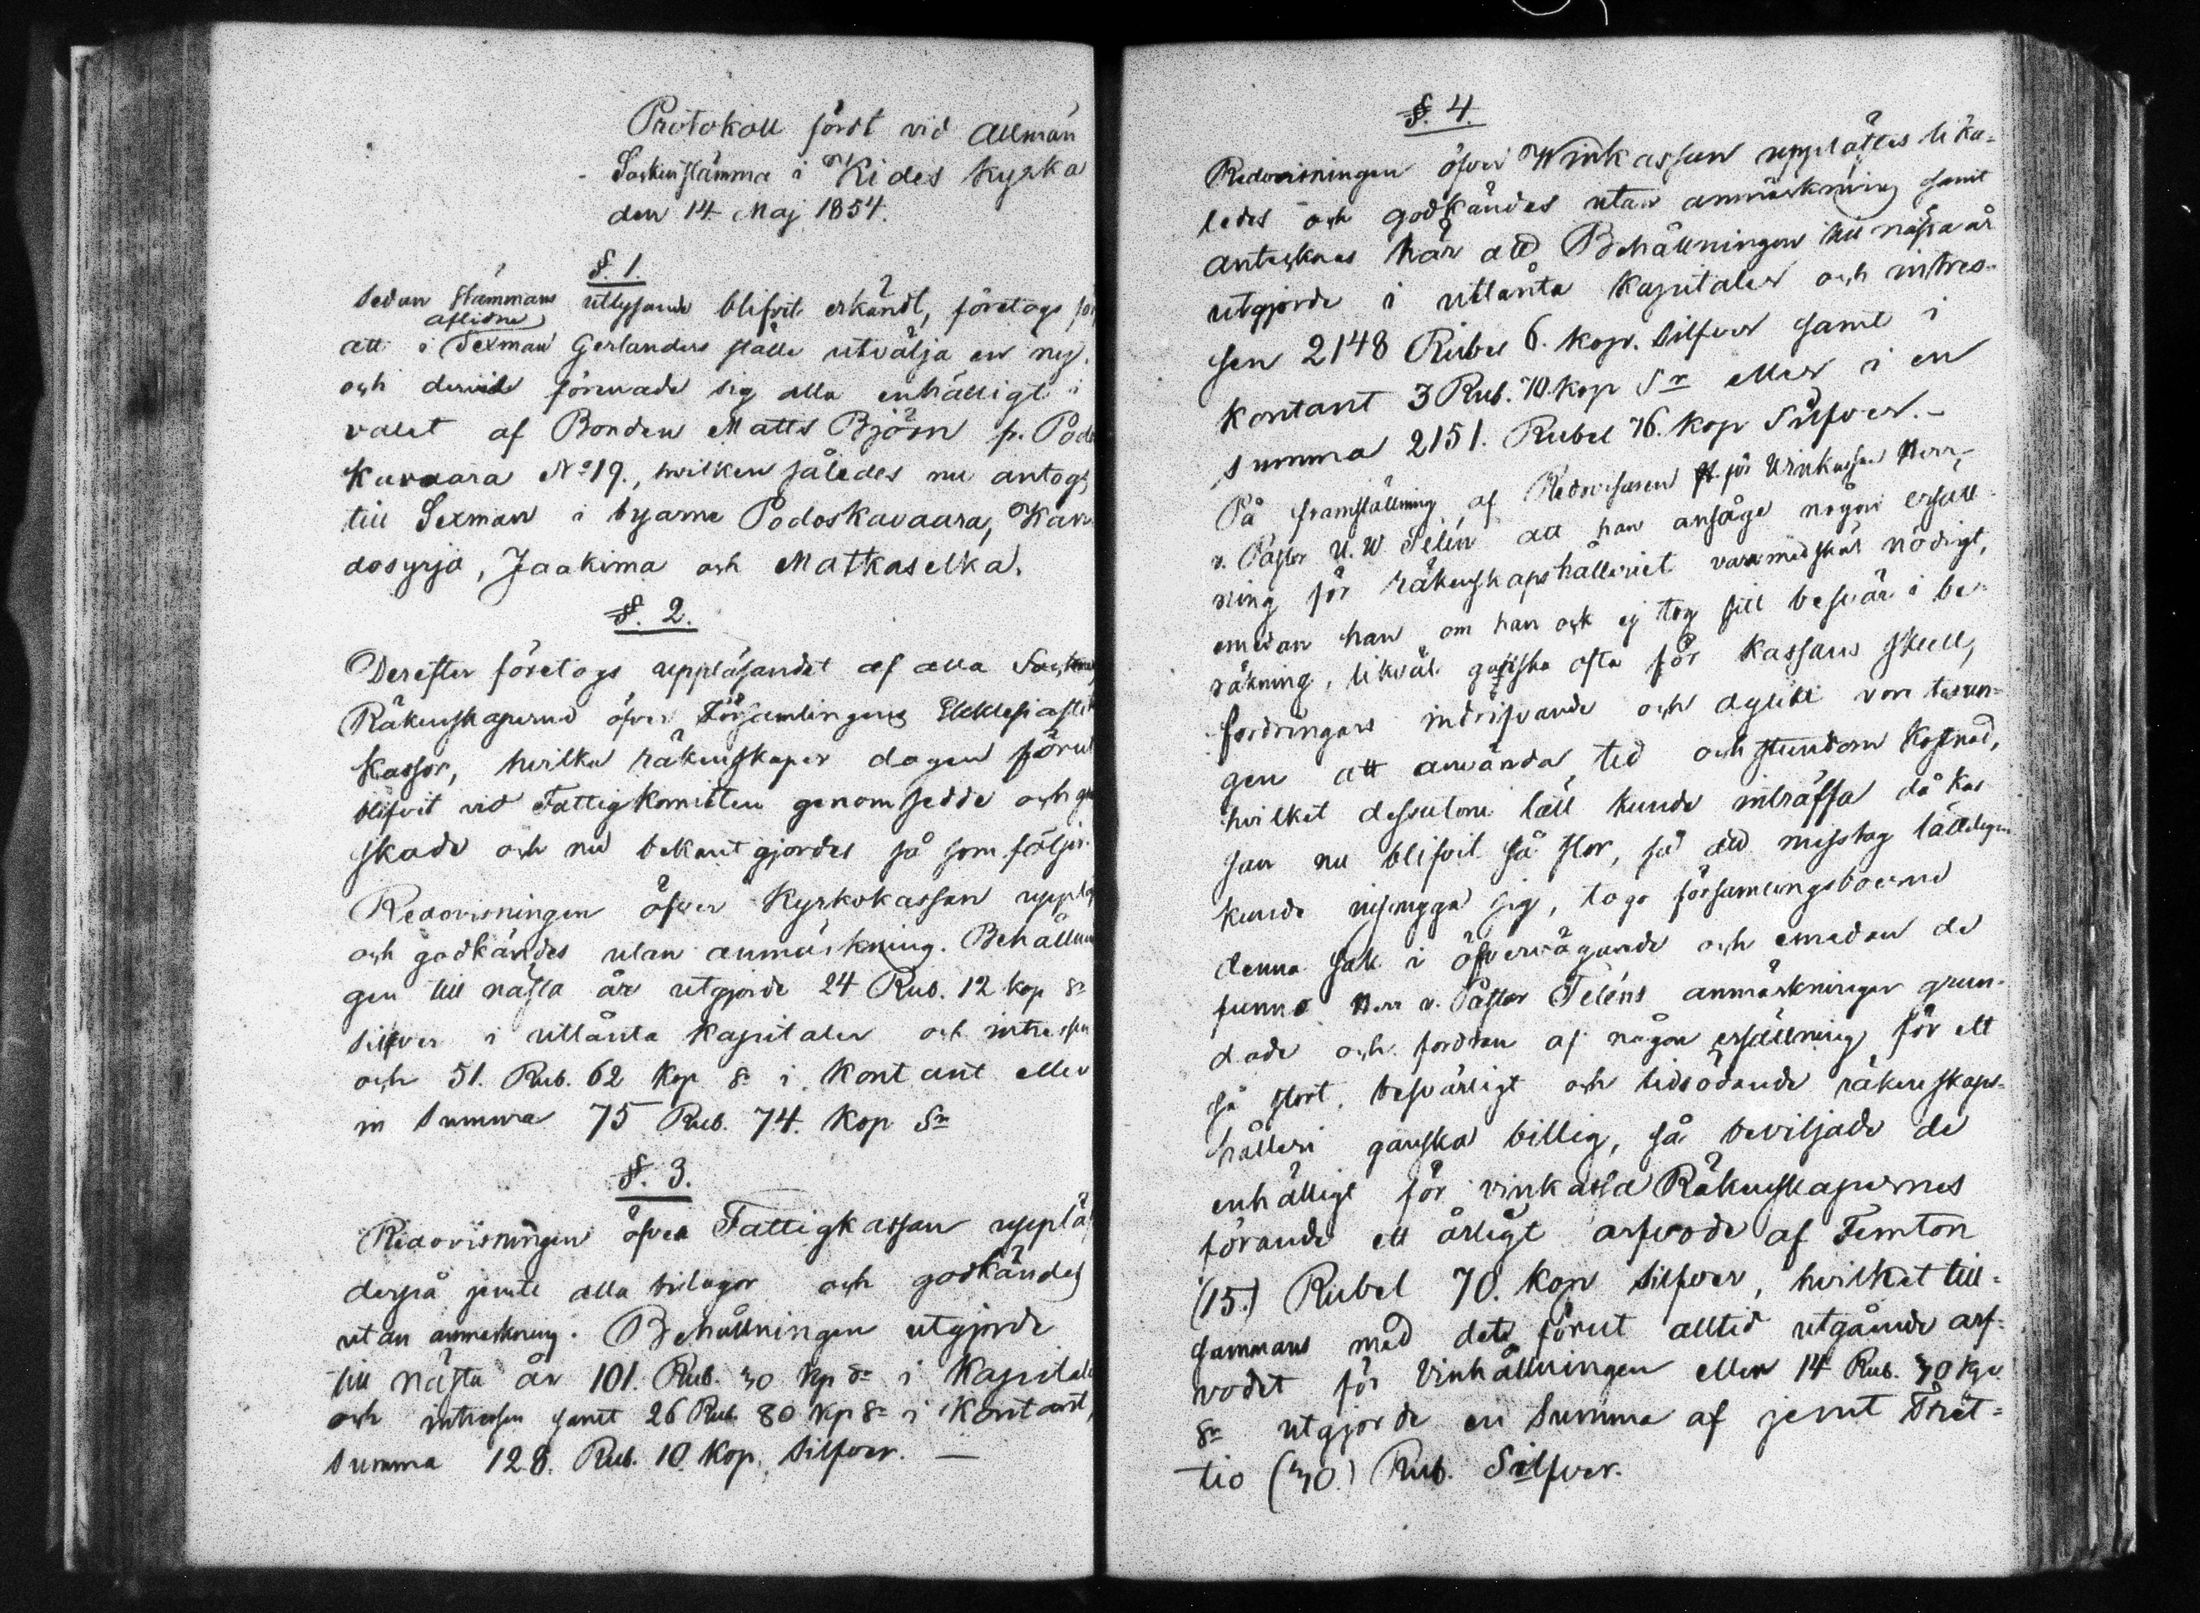 Protokoll fördt vid Allmän
Sockenstämma i Kides kyrka
den 14 Maj 1854.
§. 1.
Sedan stämmans utlysande blifvit erkändt, företogs för
aflidne
att i Sexman Gerlanders ställe utvälja en ny.
och dervid förenade sig alla enhälligt i
valet af Bonden Matts Björn fr. Podos
kavaara No 19., hvilken således nu antogs
till Sexman i byarne Podoskavaara, Kan
dosyrjä, Jaakima och Matkaselkä.
§. 2.
Derefter företogs uppläsandet af alla
Räkenskaperne öfver Församlingens Ecklesiastik
Kassor, hvilka räkenskaper dagen förut
blifvit vid Fattigkomitten genomsedde och gran
skade och nu bekantgjordes så som följer.
Redovisningen öfver Kyrkokassan
och godkändes utan anmärkning. Behållnin
gen till nästa år utgjorde 24 Rub. 12 kop Sr
Silfver i utlånta kapitaler och intressen
och 51. Rub. 62 kop Sr i Kontant eller
in Summa 75 Rub. 74. kop Sr
§. 3.
Redovisningen öfver Fattigkassan upplä
derpå jemte alla bilagor och godkändes
utan anmärkning. Behållningen utgjorde
till nästa år 101. Rub. 30 kop Sr i Kapitaler
och intressen samt 26 Rub. 80 kop Sr i Kontant,
Summa 128. Rub. 10. kop. Silfver. —
§. 4.
Redovisningen öfver Winkassan upplästes lika-
ledes och godkändes utan anmärkning samt
antecknas här att Behållningen till nästa år
utgjorde i utlånta kapitaler och intres-
sen 2148 Rubel 6. kop. Silfver samt i
Kontant 3 Rub. 70. kop Sr eller i en
summa 2151. Rubel 76. kop Silfver. -
På framställning af Redovisaren för Winkassan Herr
v. Pastor U. W. Telén att han ansåge någon ersätt-
ning för räkenskapshålleriet vara med skäl nödigt,
emedan han om han ock ej tog sitt besvär i be-
räkning, likväl ganska ofta för kassans skull,
fordringars indrifvande och dylikt vore tvun-
gen att använda tid och stundom kostnad,
hvilket dessutom lätt kunde inträffa då kas
san nu blifvit så stor, så att misstag lätteligen
kunde insmyga sig, togo församlingsboerne
denna sak i öfvervägande och emedan de
funno Herr v. Pastor Teléns anmärkningar grun-
dade och fordran af någon ersättning för ett
så stort, besvärligt och tidsödande räkenskaps-
hålleri ganska billig, så beviljade de
enhälligt för vinkassa Räkenskapernes
förande ett årligt arfvode af Femton
(15.) Rubel 70. kop Silfver, hvilket till-
sammans med det förut alltid utgående arf-
vodet för Vinhållningen eller 14 Rub. 30 kop
Sr utgjorde en Summa af jemt Tret-
tio (30.) Rub. Silfver.